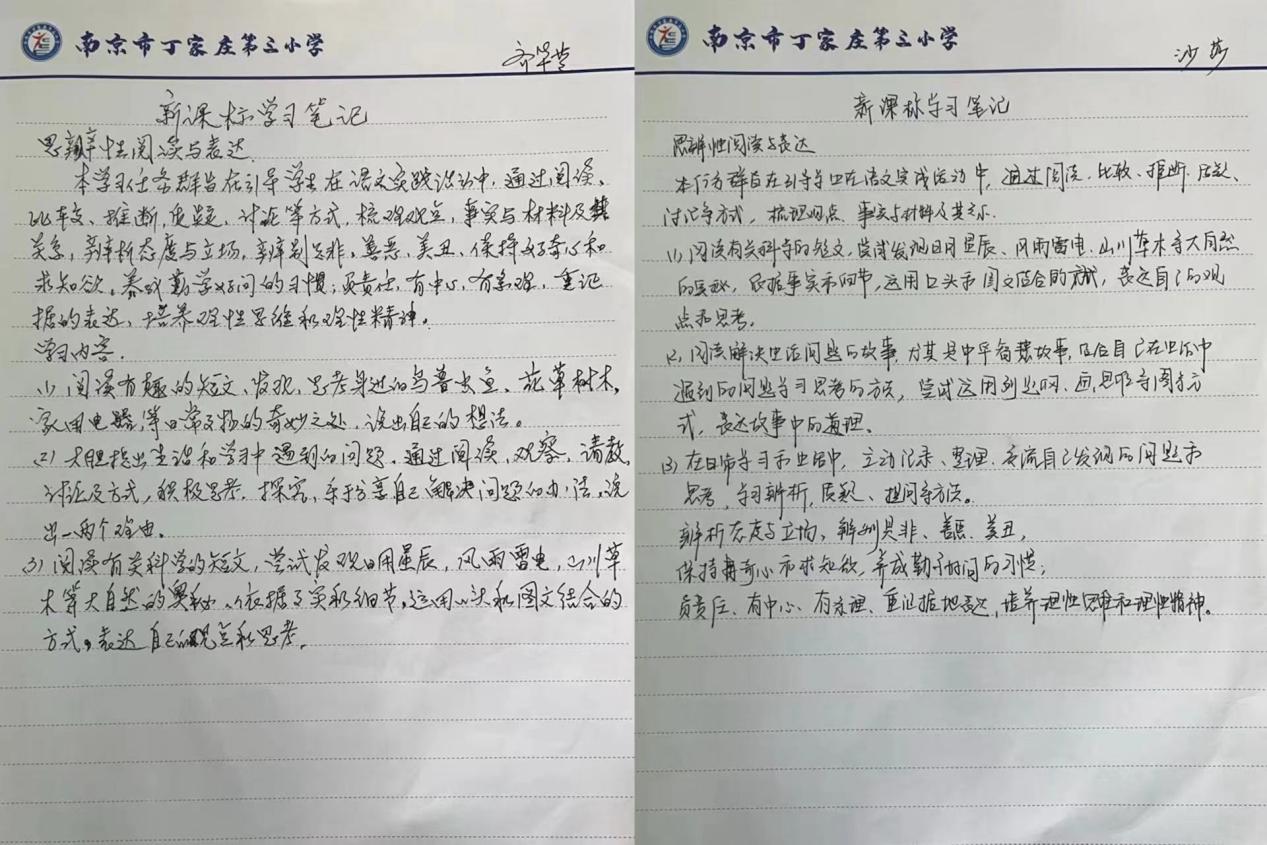 南京市丁家庄第三小学
新课标学习笔记
思辨性阅读与表达
本学习任务群旨在引导学生在语文实践活动中,通过阅读、
比较、推断,质疑,讨论等方式,梳理观点,事实与材料及其
关系,辨析态度与立场,辨别是非,善恶,美丑,保持好奇心和
求知欲。养成勤学好问的习惯;负责任,有中心,有条理,重证
据的表达,培养理性思维和理性精神。
学习内容.
(1) 阅读有趣的短文,发现,思考身边的鸟兽虫鱼、花草树木,
家用电器,等日常事物的奇妙之处,说出自己的想法。
(2) 大胆提出生活和学习中遇到的问题,通过阅读,观察,请教,
讨论及方式,积极思考、探究,乐于分享自己解决问题的办法,说
出一两个理由。
3) 阅读有关科学的短文,尝试发现日月星辰,风雨雷电,山川草
木等大自然的奥秘,依据事实和细节,运用口头和图文结合的
方式,表达自己的观点和思考。
南京市丁家庄第三小学
沙莎
新课标学习笔记
思辨性阅读与表达
本任务群旨在引导学生在语文实践活动中,通过阅读、比较、推断、质疑、
讨论等方式,梳理观点、事实与材料及其关系.
(1) 阅读有关科学的短文,尝试发现日月星辰、风雨雷电、山川草木等大自然
的奥秘,依据事实和细节,运用口头和图文结合的方式,表达自己的观
点和思考。
(2) 阅读解决生活问题的故事,尤其是中华智慧故事,结合自己在生活中
遇到的问题学习思考的方法,尝试运用列提纲、画思维导图等方
式,表达故事中的道理。
(3) 在日常学习和生活中,主动记录、整理、交流自己发现的问题和
思考,学习辨析,质疑、提问等方法。
辨析态度与立场,辨别是非、善恶、美丑,
保持好奇心和求知欲,养成勤学好问的习惯;
负责任、有中心、有条理、重证据地表达,培养理性思维和理性精神。